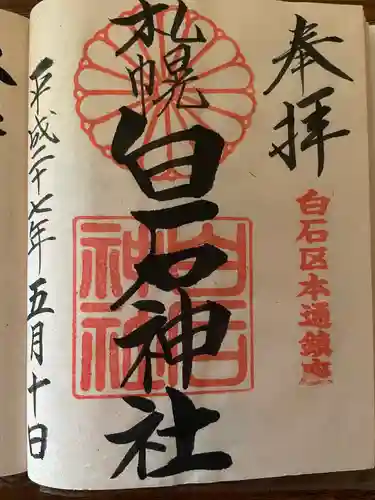 奉拝
白石区本通鎮座
札幌
白石神社
白石神社
平成二十七年五月十日